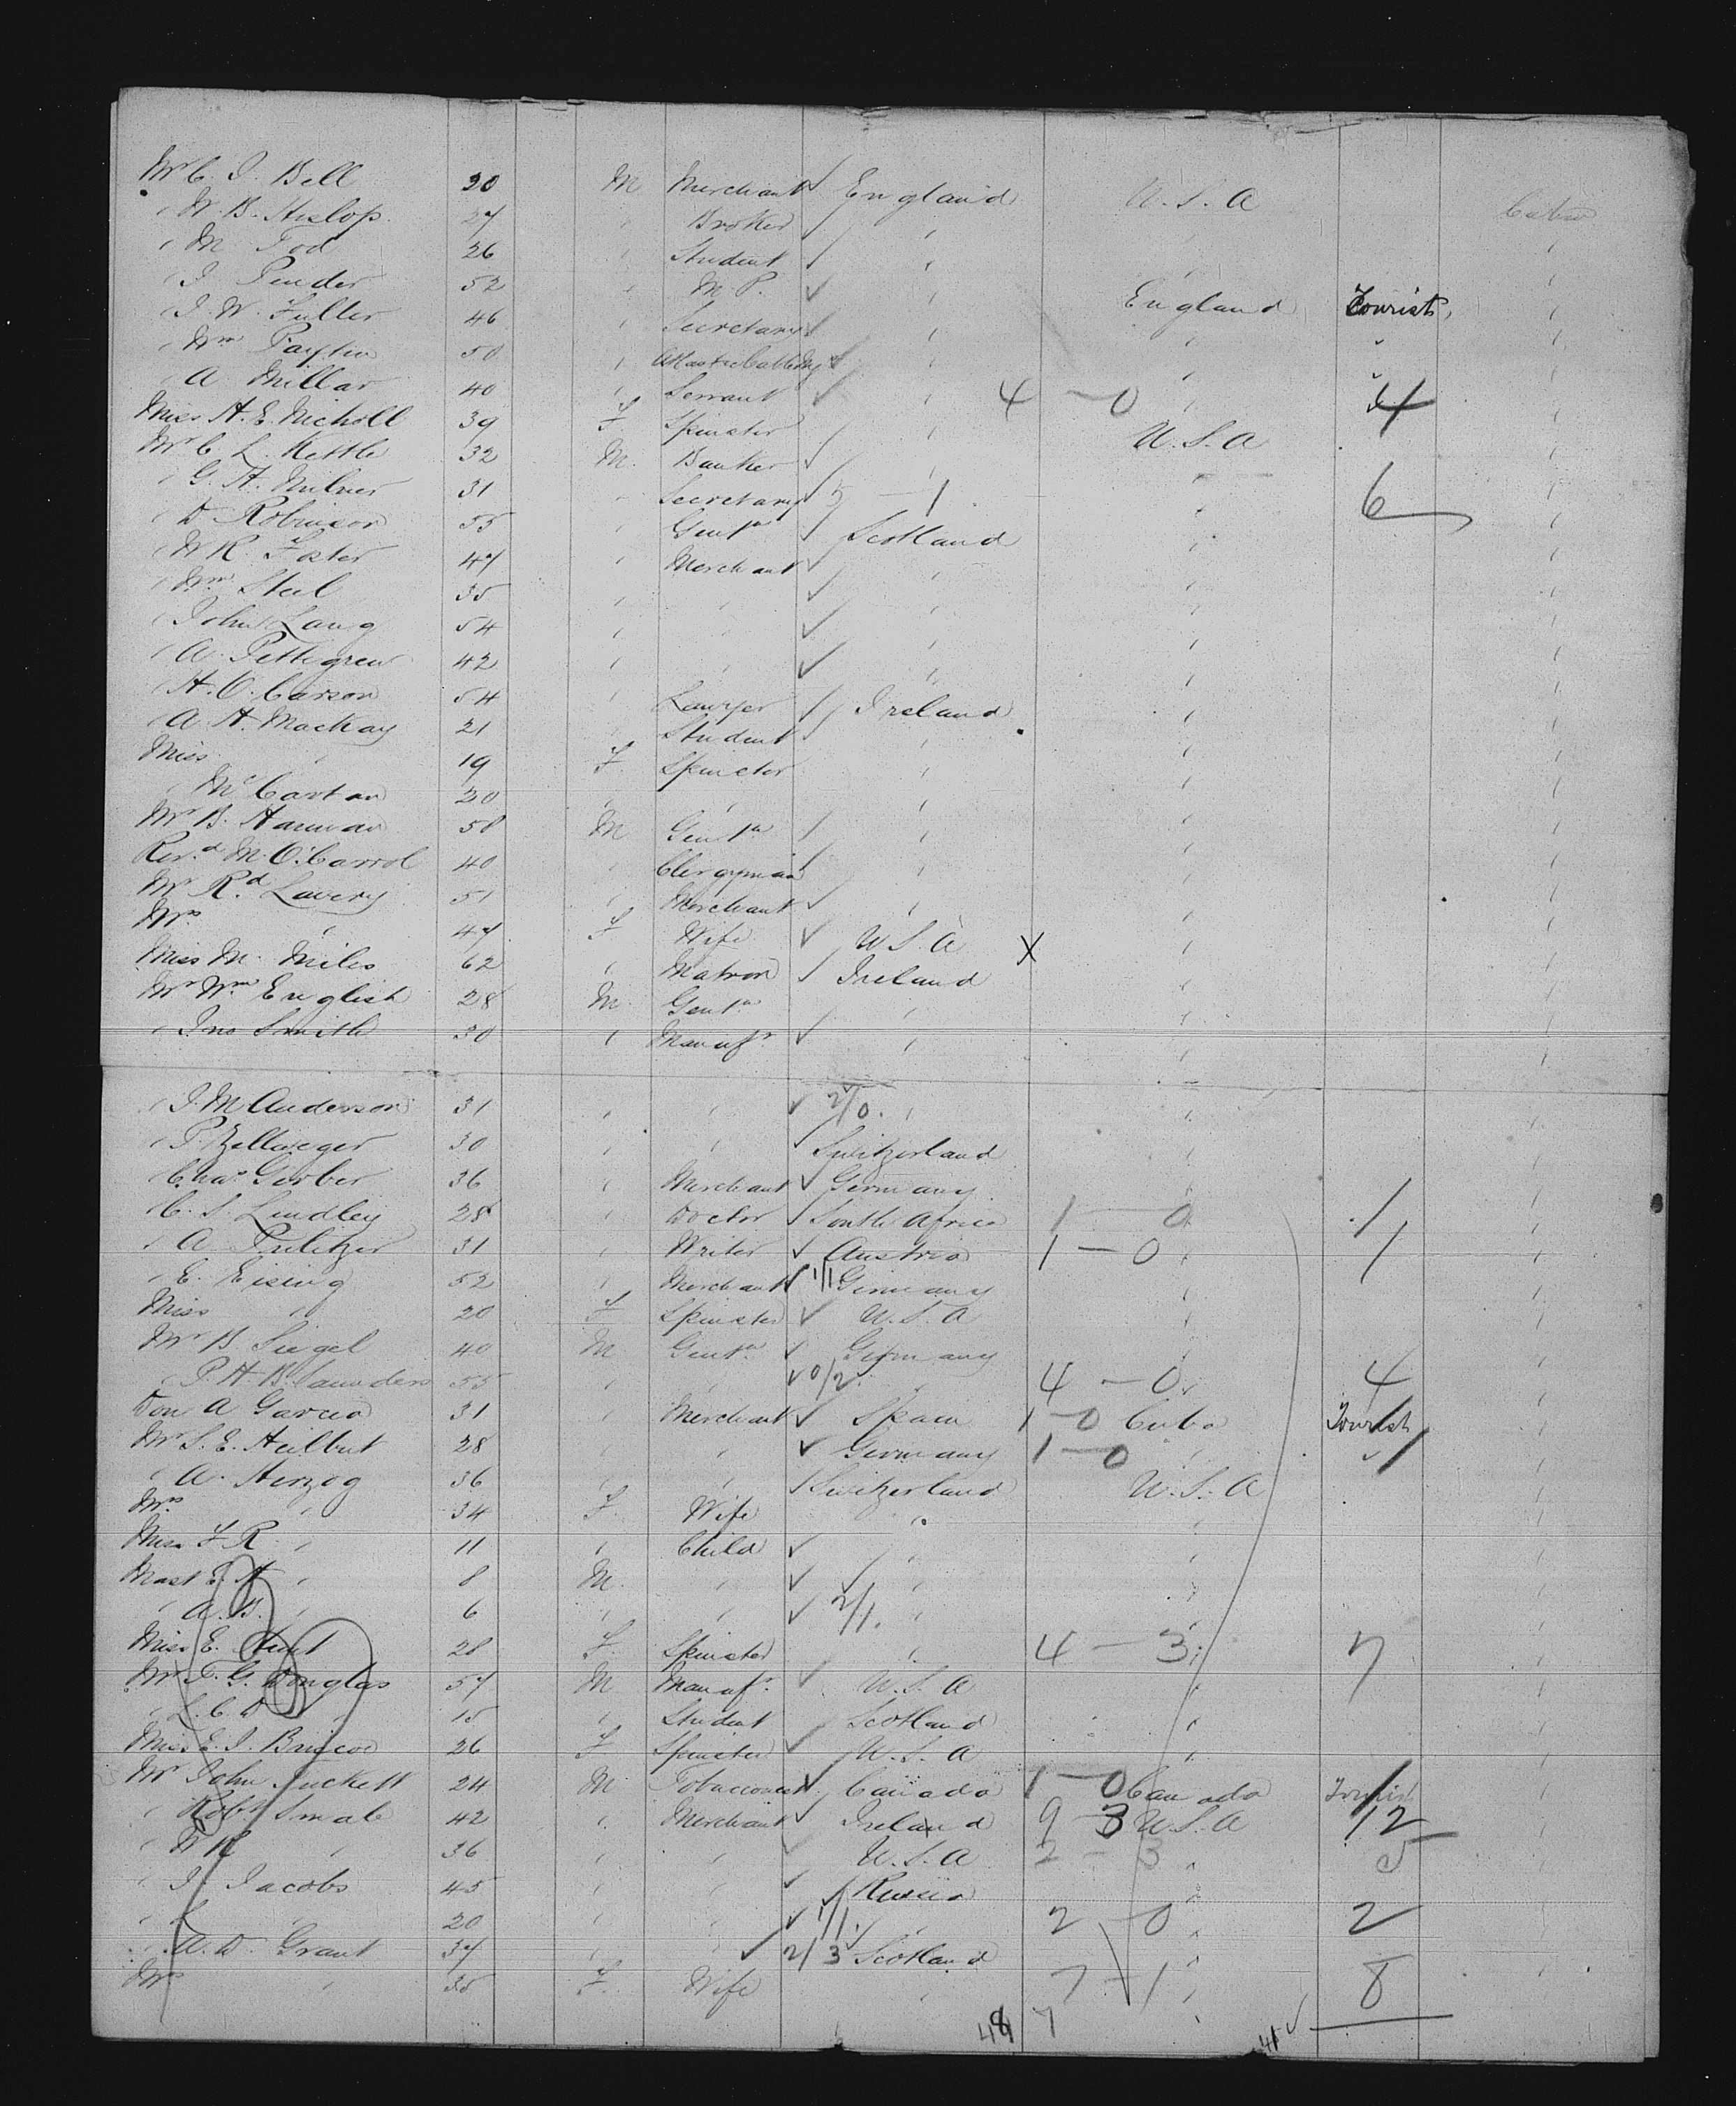 Mr C. J. Bell 20 M Merchant England U.S.A Cabin
" W. B. Hislop 27 " Broker " "
" M Tod 26 " Student " "
" J. Pender 52 " M P. " England Tourist
" J. W. Fuller 46 " Secretary " " "
" Wm Payton 50 " " " "
" A. Millar 40 " Servant " 4 - 0 " 4
Miss H. E. Nicholl 39 F Spinster " U.S.A
Mr C. L. Kettle 32 M. Banker " "
" G. H. Milner 31 " Secretary 5 - 1 " 6
" D Robinson 55 " Gentn Scotland "
" W R. Foster 47 " Merchant " "
" Wm Steel 35 " " " "
" John Lang 54 " " " "
" A. Pettigrew 42 " " " "
" H. O. Carson 54 " Lawyer Ireland "
" A. H. Mackay 21 " Student " "
Miss " 19 F. Spinster " "
" McCartan 20 " " " "
Mr B. Hannan 58 M Gentn " "
Rev.d M. O'Carrol 40 " Clergyman " "
Mr R.d Lavery 51 " Merchant " "
Mrs " 47 F Wife U S. A X "
Miss M. Miles 62 " Matron Ireland "
Mr Wm English 28 M. Gentn " "
" Jno Smith 30 " Manufr " "
" J. M Anderson 31 " " 2/0. " "
" P. Zellweger 30 " " Switzerland "
" Chas Gerber 36 " Merchant Germany "
" C. S. Lindley 28 " Doctor South Africa 1 - 0 " 1
" A. Pulitzer 31 " Writer Austria 1 - 0 " 1
" E. Eising 52 " Merchant 1/1 Germany "
Miss " 20 F Spinster U.S.A "
Mr B Siegel 40 M Gentn Germany "
" P. H. B. Saunders 55 " " 0/2 " 4 - 0 " 4
Don A Garcia 31 " Merchant Spain 1 - 0 Cuba Tourist 1
Mr S. E. Heilbut 28 " " Germany 1 - 0 " " 1
" A. Herzog 36 " " Switzerland U.S.A
Mrs " 34 F. Wife " "
Miss F R. " 11 " Child " "
Mast E. H " 8 M. " " "
" A. B. " 6 " " 2/1. " "
Miss E. 28 F. Spinster " 4 - 3 " 7
Mr T. G. Douglas 57 M Manufr. U.S.A "
" L. C. D " 15 " Student Scotland "
Miss E. J. Briscoe 26 F Spinster U.S.A "
Mr John Tuckett 24 M Tobacconist Canada 1 - 0 Canada Tourist 1
" Robt Smale 42 " Merchant Ireland 9 - 3 U.S.A 12
" W R " 36 " " U.S.A 2 - 3 " 5
" J. Jacobs 45 " " Russia "
" " 20 " " 1/1. " 2 - 0 " 2
" A. D. Grant 37 " " 2/3 Scotland "
Mrs " 35 F. Wife " 7 - 1 " 8
48 7 41